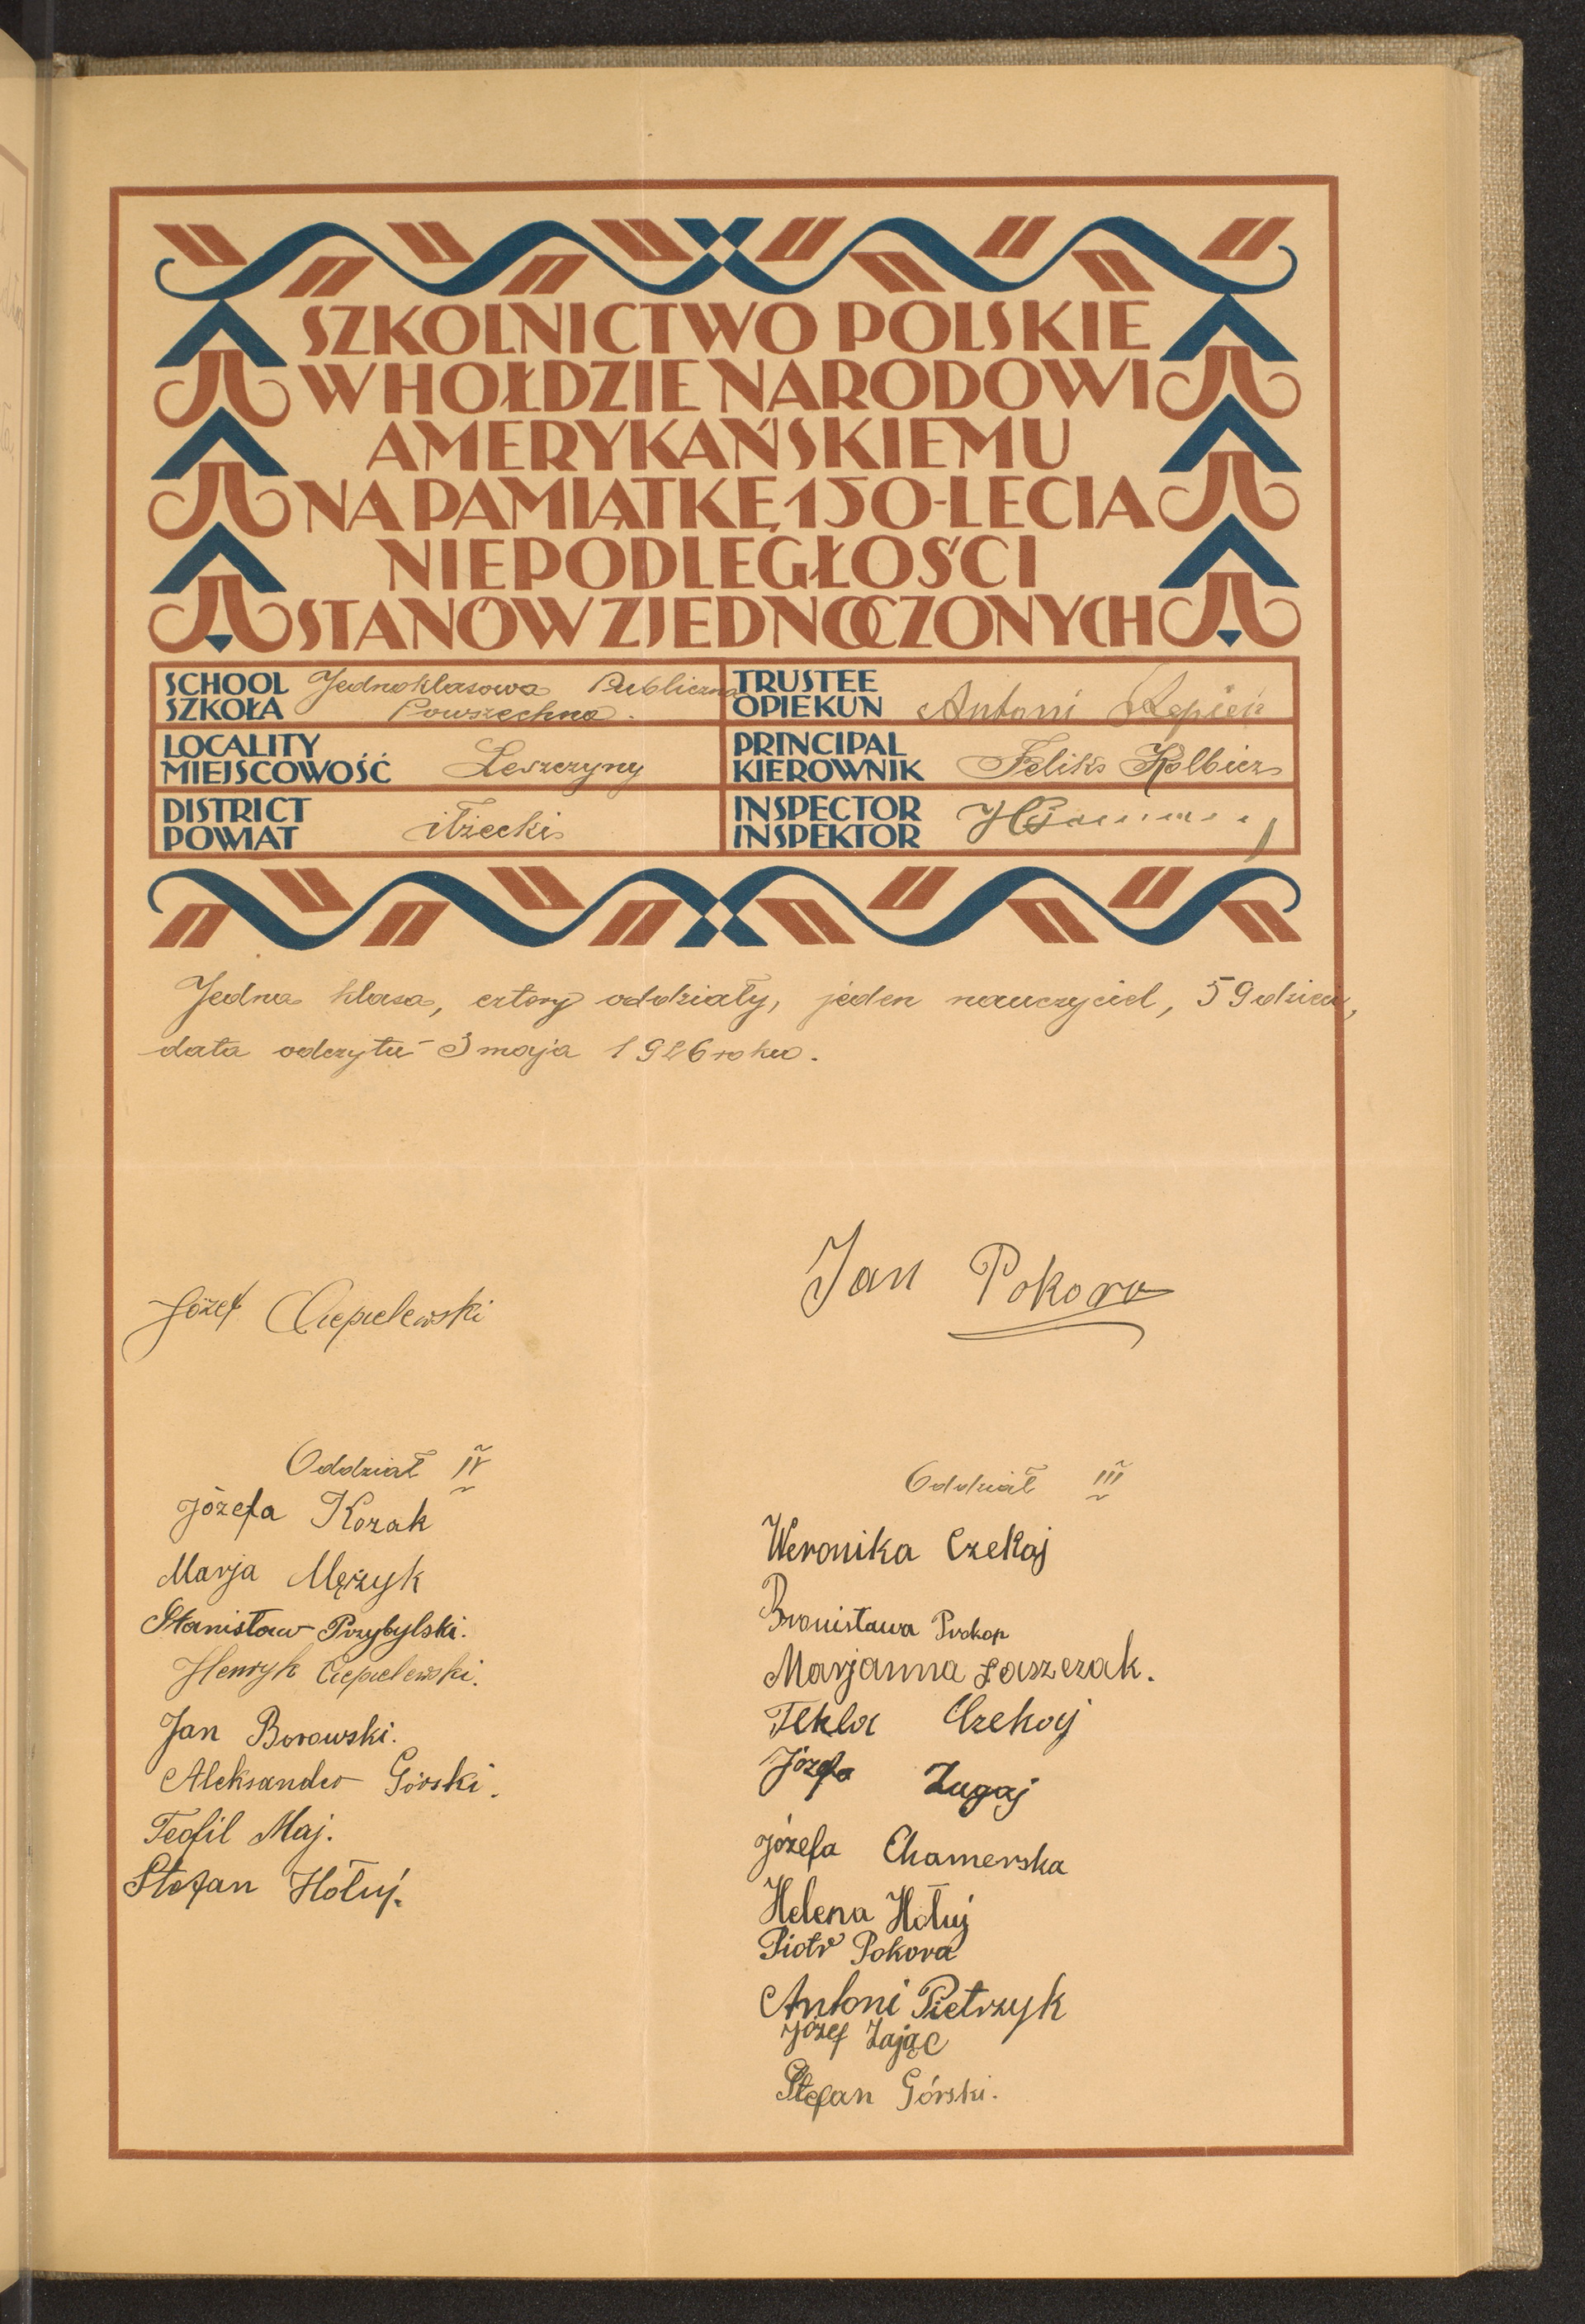 SZKOLNICTWO POLSKIE
W HOŁDZIE NARODOWI
AMERYKAŃSKIEMU
NA PAMIĄTKĘ 150-LECIA
NIEPODLEGŁOŚCI
STANÓW ZJEDNOCZONYCH
SCHOOL Jednoklasowa Publiczna
SZKOŁA Powszechna.
TRUSTEE
OPIEKUN Antoni
LOCALITY
MIEJSCOWOŚĆ Leszczyny
PRINCIPAL
KIEROWNIK Feliks Kolbicz
DISTRICT
POWIAT iłżecki
INSPECTOR
INSPEKTOR
Jedna klasa, cztery oddziały, jeden nauczyciel, 59 dzieci,
data odczytu 3 maja 1926 roku.
Józef Ciepielewski
Jan Pokora
Oddział IV
Józefa Kozak
Marja Mężyk
Stanisław Przybylski.
Henryk Ciepielewski.
Jan Borowski.
Aleksander Górski.
Teofil Maj.
Stefan Hołuj.
Oddział III
Weronika Czekaj
Bronisława Prokop
Marjanna Łaszczak.
Tekla Czekaj
Józefa Zugaj
Józefa Chamerska
Helena Hołuj
Piotr Pokora
Antoni Pietrzyk
Józef Zając
Stefan Górski.